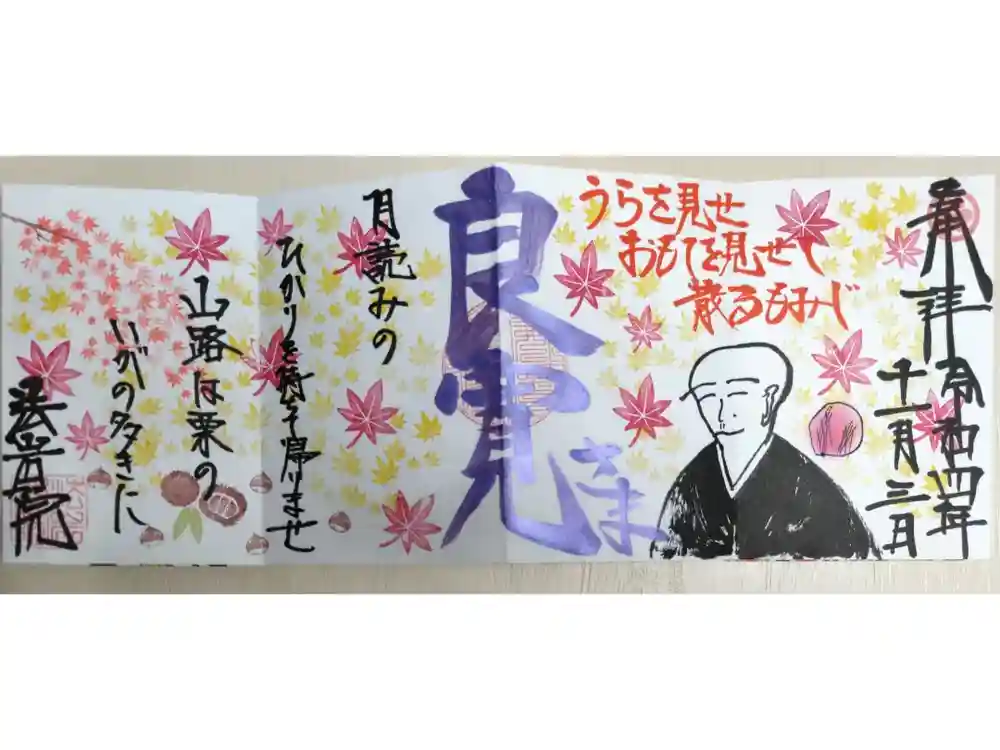 奉拝
令和四年
十一月三日
うらを見せ
おもてを見せて
散るもみじ
良寛さま
月読みの
ひかりを待ちて帰りませ
山路は栗の
いがの多きに